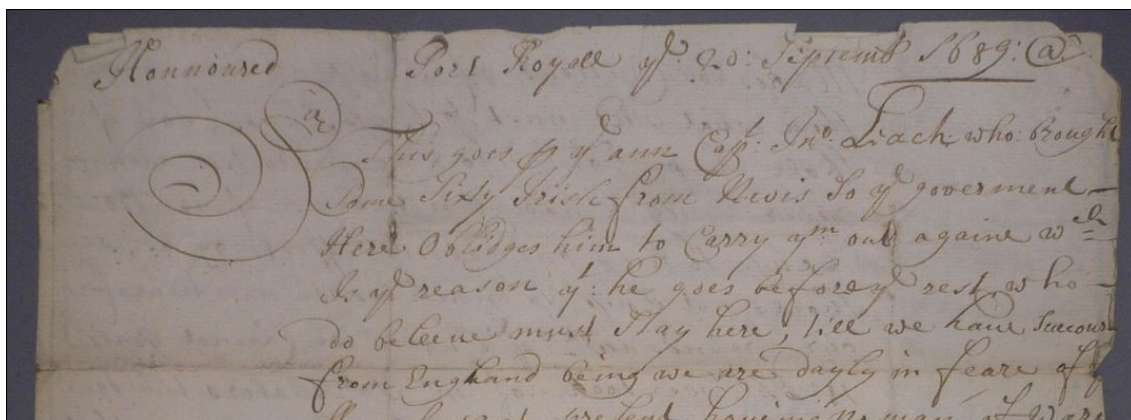 Honnoured Port Royall ye: 20: Septemb 1689: @
Sir
This goes p ye ann Capt: Jno. Leach: who: brought
Some Sixty Irish from Nevis So ye goverment
Here Oblidges him to Carry ym out againe wch
Is ye reason yt: he goes before ye rest who
do beleeve must Stay here, till we have Succour
from England being we are dayly in feare of ye
at present having no man of War